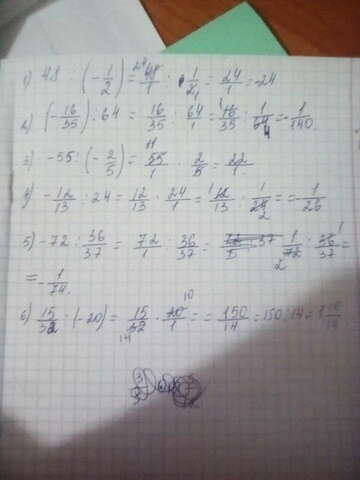 1) 48 : (-1/2) = 48/1 · 1/2 = 24/1 = -24
2) (-16/35) : 64 = 16/35 : 64/1 = 16/35 : 1/64 = -1/140.
3) -55 : (-2/5) = 55/1 · 2/5 = 22/1
4) -12/13 : 24 = 12/13 · 24/1 = 12/13 : 1/24 = = -1/26
5) -72 : 36/37 = 72/1 : 36/37 = 1/72 : 36/37 =
= -1/74.
6) 15/32 : (-20) = 15/32 · 20/1 = = 150/14 = 150:14 = 1 10/14